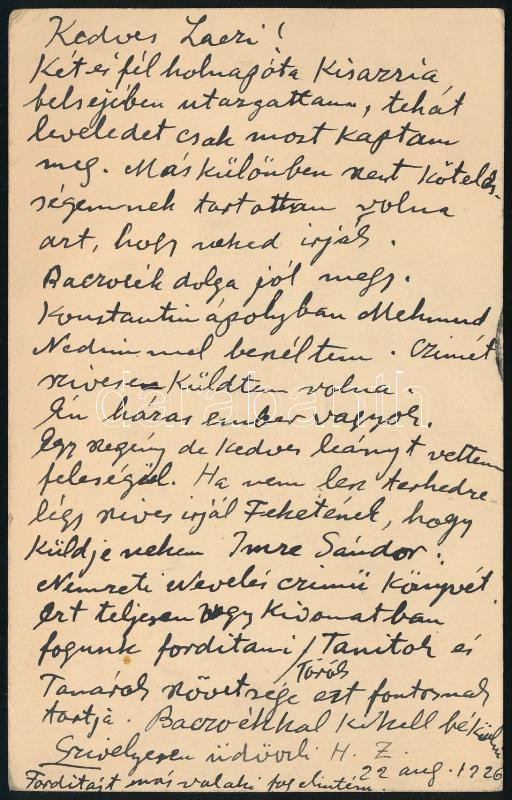 Kedves Laczi!
Két és fél holnapóta Kisázsia
belsejében utazgattam, tehát
leveledet csak most kaptam
meg. Máskülönben szent köteles-
ségemnek tartottam volna
azt, hogy neked írják.
Baczoék dolga jól megy.
Konstantinápolyban Mehmud
Nedimmel beszéltem. Czimét
szivesen küldtem volna.
Én házas ember vagyok.
Egy szegény de kedves leányt vettem
feleségül. Ha nem lesz terhedre
légy szives irjál Feketének, hogy
küldje nekem Imre Sándor:
Nemzeti Nevelés czimü könyvét.
Ezt teljesen vagy kivonatban
fogunk forditani / Tanitok és
Török
Tanárok szövetsége ezt fontosnak
tartja. Baczoékkal ki kell békülni
Szivélyesen üdvözli H. Z.
22 aug. 1926
Forditást más valaki fog